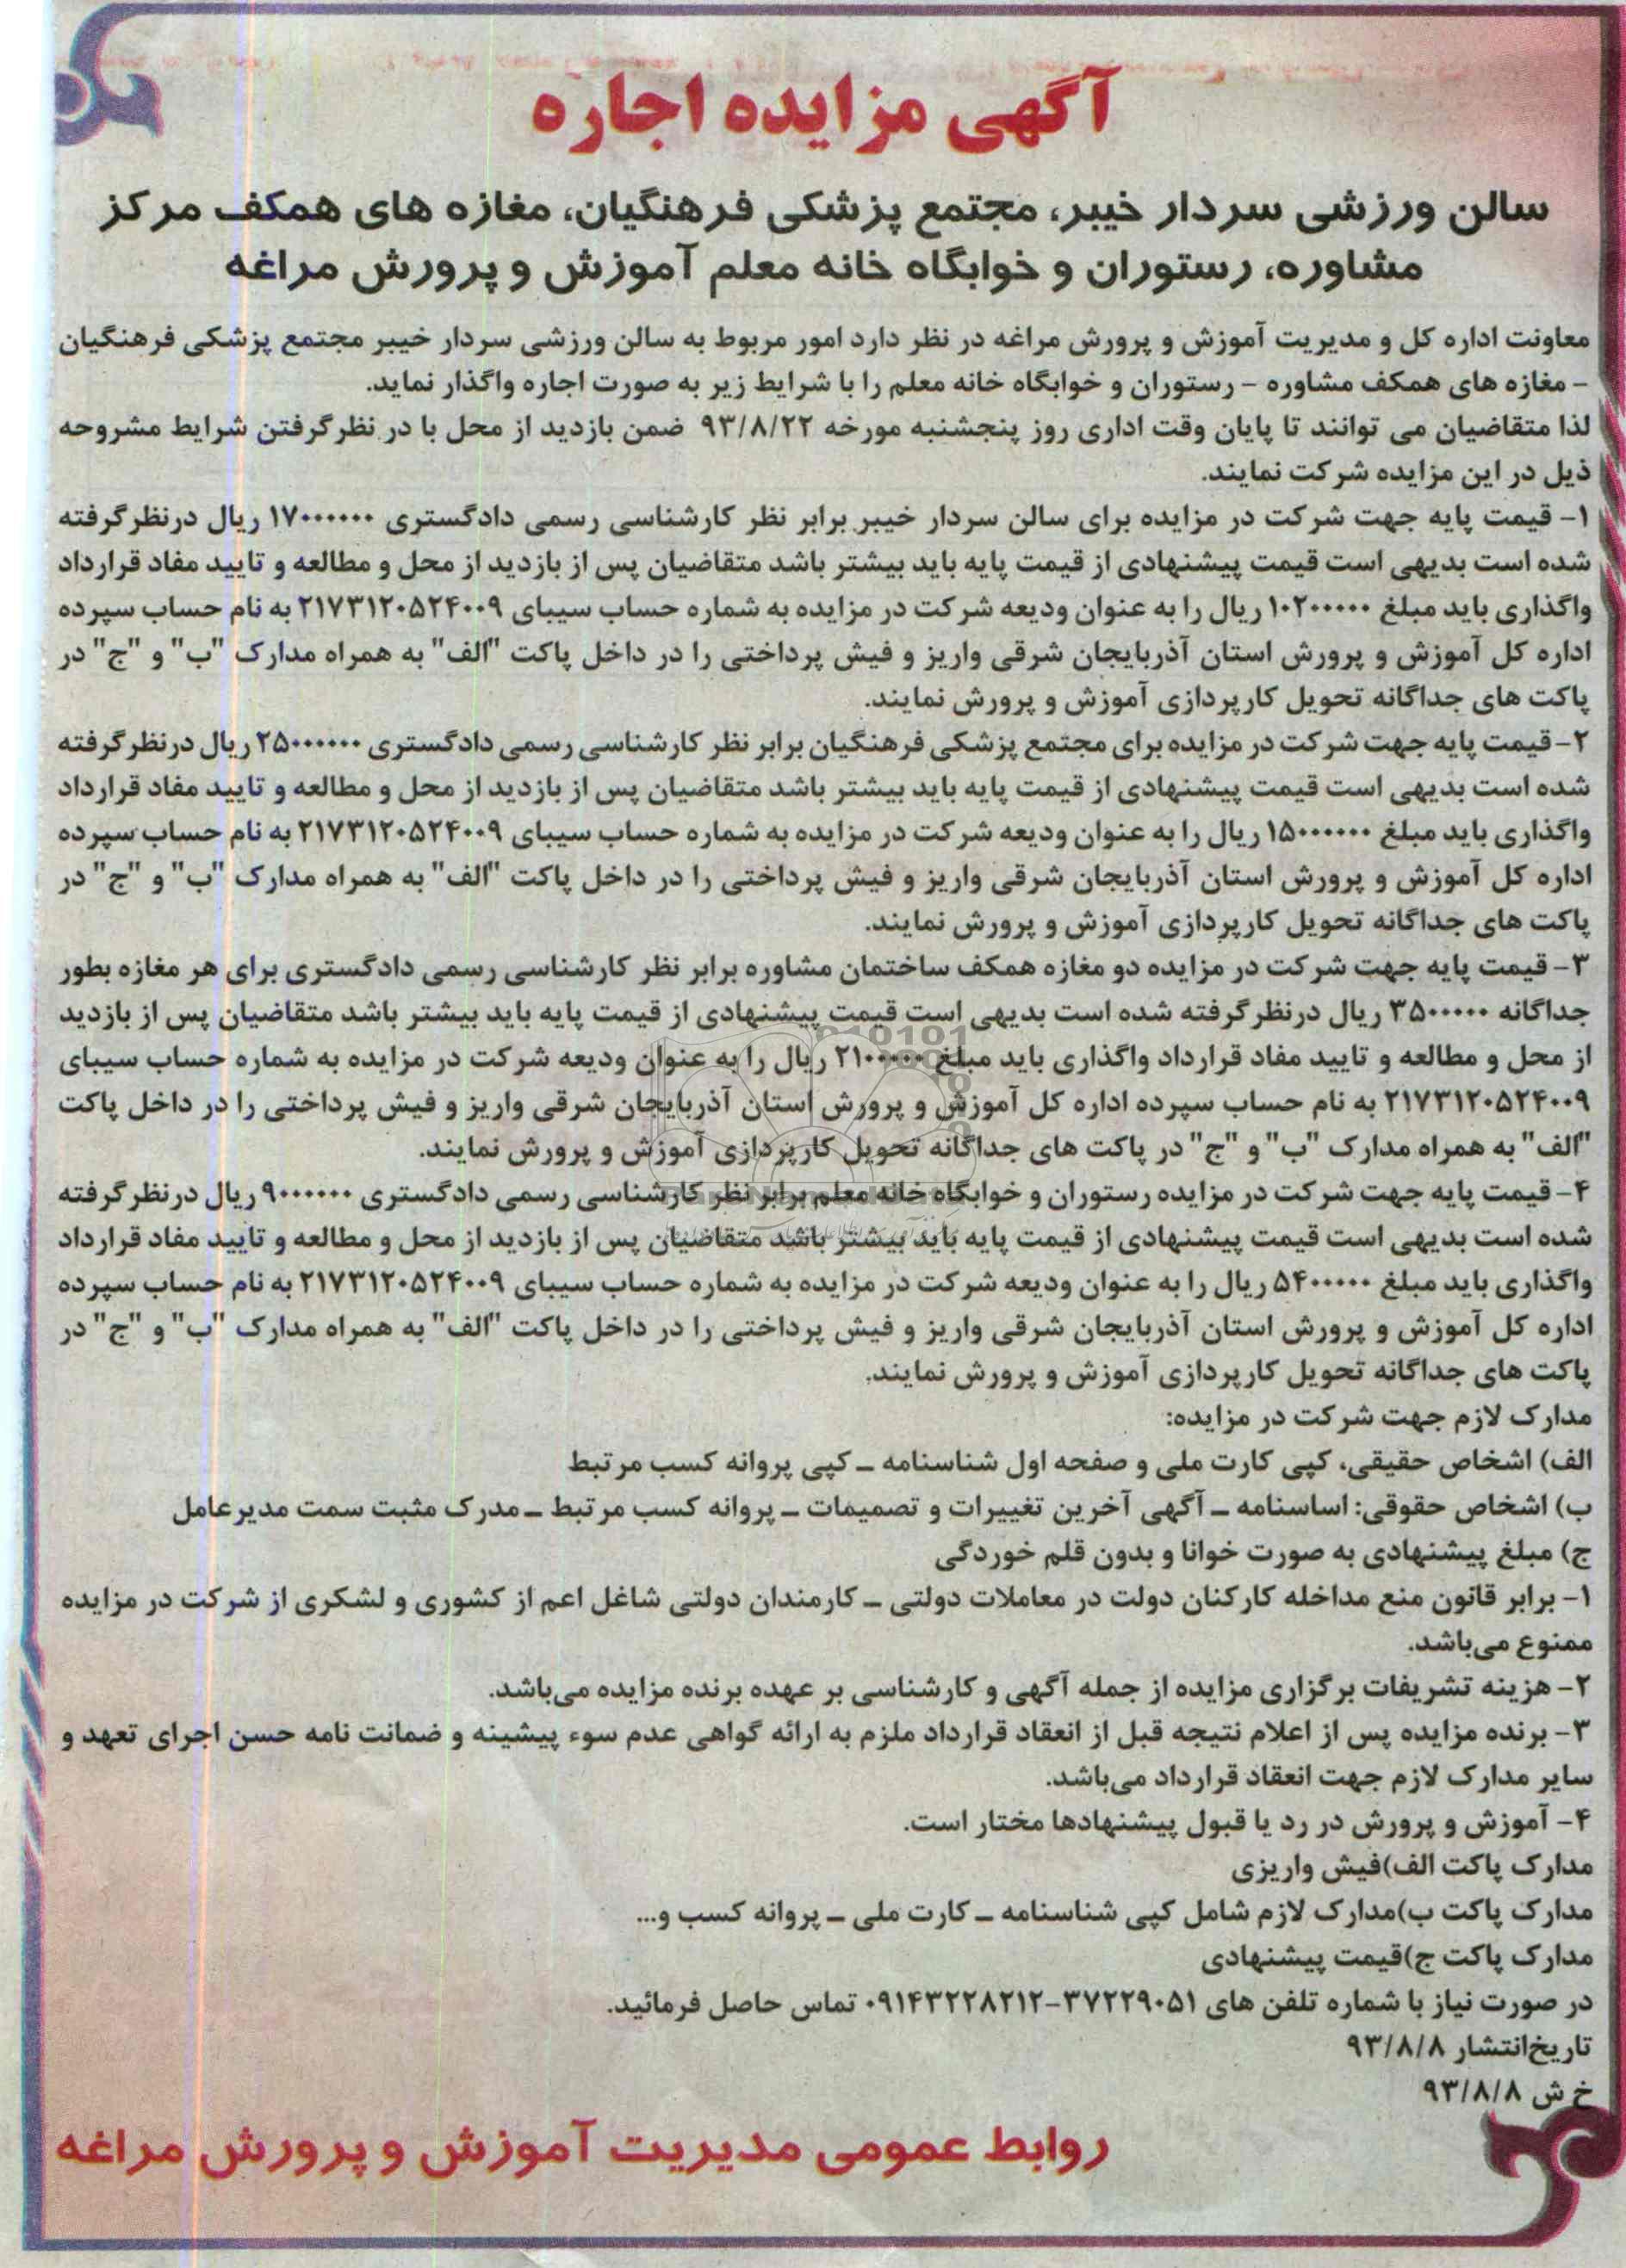 آگهی مزایده اجاره
سالن ورزشی سردار خیبر، مجتمع پزشکی فرهنگیان، مغازه های همکف مرکز
مشاوره، رستوران و خوابگاه خانه معلم آموزش و پرورش مراغه
معاونت اداره کل و مدیریت آموزش و پرورش مراغه در نظر دارد امور مربوط به سالن ورزشی سردار خیبر مجتمع پزشکی فرهنگیان
- مغازه های همکف مشاوره - رستوران و خوابگاه خانه معلم را با شرایط زیر به صورت اجاره واگذار نماید.
لذا متقاضیان می توانند تا پایان وقت اداری روز پنجشنبه مورخه ۹۳/۸/۲۲ ضمن بازدید از محل با در نظر گرفتن شرایط مشروحه
ذیل در این مزایده شرکت نمایند.
۱- قیمت پایه جهت شرکت در مزایده برای سالن سردار خیبر برابر نظر کارشناسی رسمی دادگستری ۱۷۰۰۰۰۰۰ ریال درنظر گرفته
شده است بدیهی است قیمت پیشنهادی از قیمت پایه باید بیشتر باشد متقاضیان پس از بازدید از محل و مطالعه و تایید مفاد قرارداد
واگذاری باید مبلغ ۱۰۲۰۰۰۰۰ ریال را به عنوان ودیعه شرکت در مزایده به شماره حساب سیبای ۲۱۷۳۱۲۰۵۲۴۰۰۹ به نام حساب سپرده
اداره کل آموزش و پرورش استان آذربایجان شرقی واریز و فیش پرداختی را در داخل پاکت "الف" به همراه مدارک "ب" و "ج" در
پاکت های جداگانه تحویل کارپردازی آموزش و پرورش نمایند.
۲- قیمت پایه جهت شرکت در مزایده برای مجتمع پزشکی فرهنگیان برابر نظر کارشناسی رسمی دادگستری ۲۵۰۰۰۰۰۰ ریال درنظر گرفته
شده است بدیهی است قیمت پیشنهادی از قیمت پایه باید بیشتر باشد متقاضیان پس از بازدید از محل و مطالعه و تایید مفاد قرارداد
واگذاری باید مبلغ ۱۵۰۰۰۰۰۰ ریال را به عنوان ودیعه شرکت در مزایده به شماره حساب سیبای ۲۱۷۳۱۲۰۵۲۴۰۰۹ به نام حساب سپرده
اداره کل آموزش و پرورش استان آذربایجان شرقی واریز و فیش پرداختی را در داخل پاکت "الف" به همراه مدارک "ب" و "ج" در
پاکت های جداگانه تحویل کارپردازی آموزش و پرورش نمایند.
۳- قیمت پایه جهت شرکت در مزایده دو مغازه همکف ساختمان مشاوره برابر نظر کارشناسی رسمی دادگستری برای هر مغازه بطور
جداگانه ۳۵۰۰۰۰۰ ریال درنظر گرفته شده است بدیهی است قیمت پیشنهادی از قیمت پایه باید بیشتر باشد متقاضیان پس از بازدید
از محل و مطالعه و تایید مفاد قرارداد واگذاری باید مبلغ ۲۱۰۰۰۰۰ ریال را به عنوان ودیعه شرکت در مزایده به شماره حساب سیبای
۲۱۷۳۱۲۰۵۲۴۰۰۹ به نام حساب سپرده اداره کل آموزش و پرورش استان آذربایجان شرقی واریز و فیش پرداختی را در داخل پاکت
"الف" به همراه مدارک "ب" و "ج" در پاکت های جداگانه تحویل کارپردازی آموزش و پرورش نمایند.
۴- قیمت پایه جهت شرکت در مزایده رستوران و خوابگاه خانه معلم برابر نظر کارشناسی رسمی دادگستری ۹۰۰۰۰۰۰ ریال درنظر گرفته
شده است بدیهی است قیمت پیشنهادی از قیمت پایه باید بیشتر باشد متقاضیان پس از بازدید از محل و مطالعه و تایید مفاد قرارداد
واگذاری باید مبلغ ۵۴۰۰۰۰۰ ریال را به عنوان ودیعه شرکت در مزایده به شماره حساب سیبای ۲۱۷۳۱۲۰۵۲۴۰۰۹ به نام حساب سپرده
اداره کل آموزش و پرورش استان آذربایجان شرقی واریز و فیش پرداختی را در داخل پاکت "الف" به همراه مدارک "ب" و "ج" در
پاکت های جداگانه تحویل کارپردازی آموزش و پرورش نمایند.
مدارک لازم جهت شرکت در مزایده:
الف) اشخاص حقیقی، کپی کارت ملی و صفحه اول شناسنامه ـ کپی پروانه کسب مرتبط
ب) اشخاص حقوقی: اساسنامه ـ آگهی آخرین تغییرات و تصمیمات ـ پروانه کسب مرتبط ـ مدرک مثبت سمت مدیرعامل
ج) مبلغ پیشنهادی به صورت خوانا و بدون قلم خوردگی
۱- برابر قانون منع مداخله کارکنان دولت در معاملات دولتی ـ کارمندان دولتی شاغل اعم از کشوری و لشکری از شرکت در مزایده
ممنوع می‌باشد.
۲- هزینه تشریفات برگزاری مزایده از جمله آگهی و کارشناسی بر عهده برنده مزایده می‌باشد.
۳- برنده مزایده پس از اعلام نتیجه قبل از انعقاد قرارداد ملزم به ارائه گواهی عدم سوء پیشینه و ضمانت نامه حسن اجرای تعهد و
سایر مدارک لازم جهت انعقاد قرارداد می‌باشد.
۴- آموزش و پرورش در رد یا قبول پیشنهادها مختار است.
مدارک پاکت الف)فیش واریزی
مدارک پاکت ب)مدارک لازم شامل کپی شناسنامه ـ کارت ملی ـ پروانه کسب و...
مدارک پاکت ج)قیمت پیشنهادی
در صورت نیاز با شماره تلفن های ۳۷۲۲۹۰۵۱-۰۹۱۴۳۲۲۸۲۱۲ تماس حاصل فرمائید.
تاریخ‌انتشار ۹۳/۸/۸
خ ش ۹۳/۸/۸
روابط عمومی مدیریت آموزش و پرورش مراغه